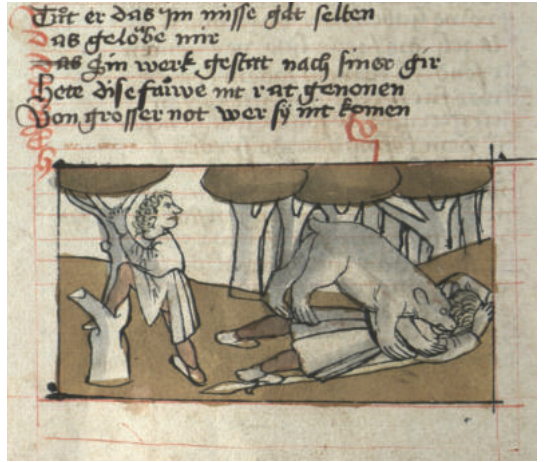 Tuͦt er das jm misse gät selten
Das geloͤbe mir
Das Sin werk gestat nach siner gir
Hete dise saͮwe nit rat genonen
Von grosser not wer sÿ nit komen